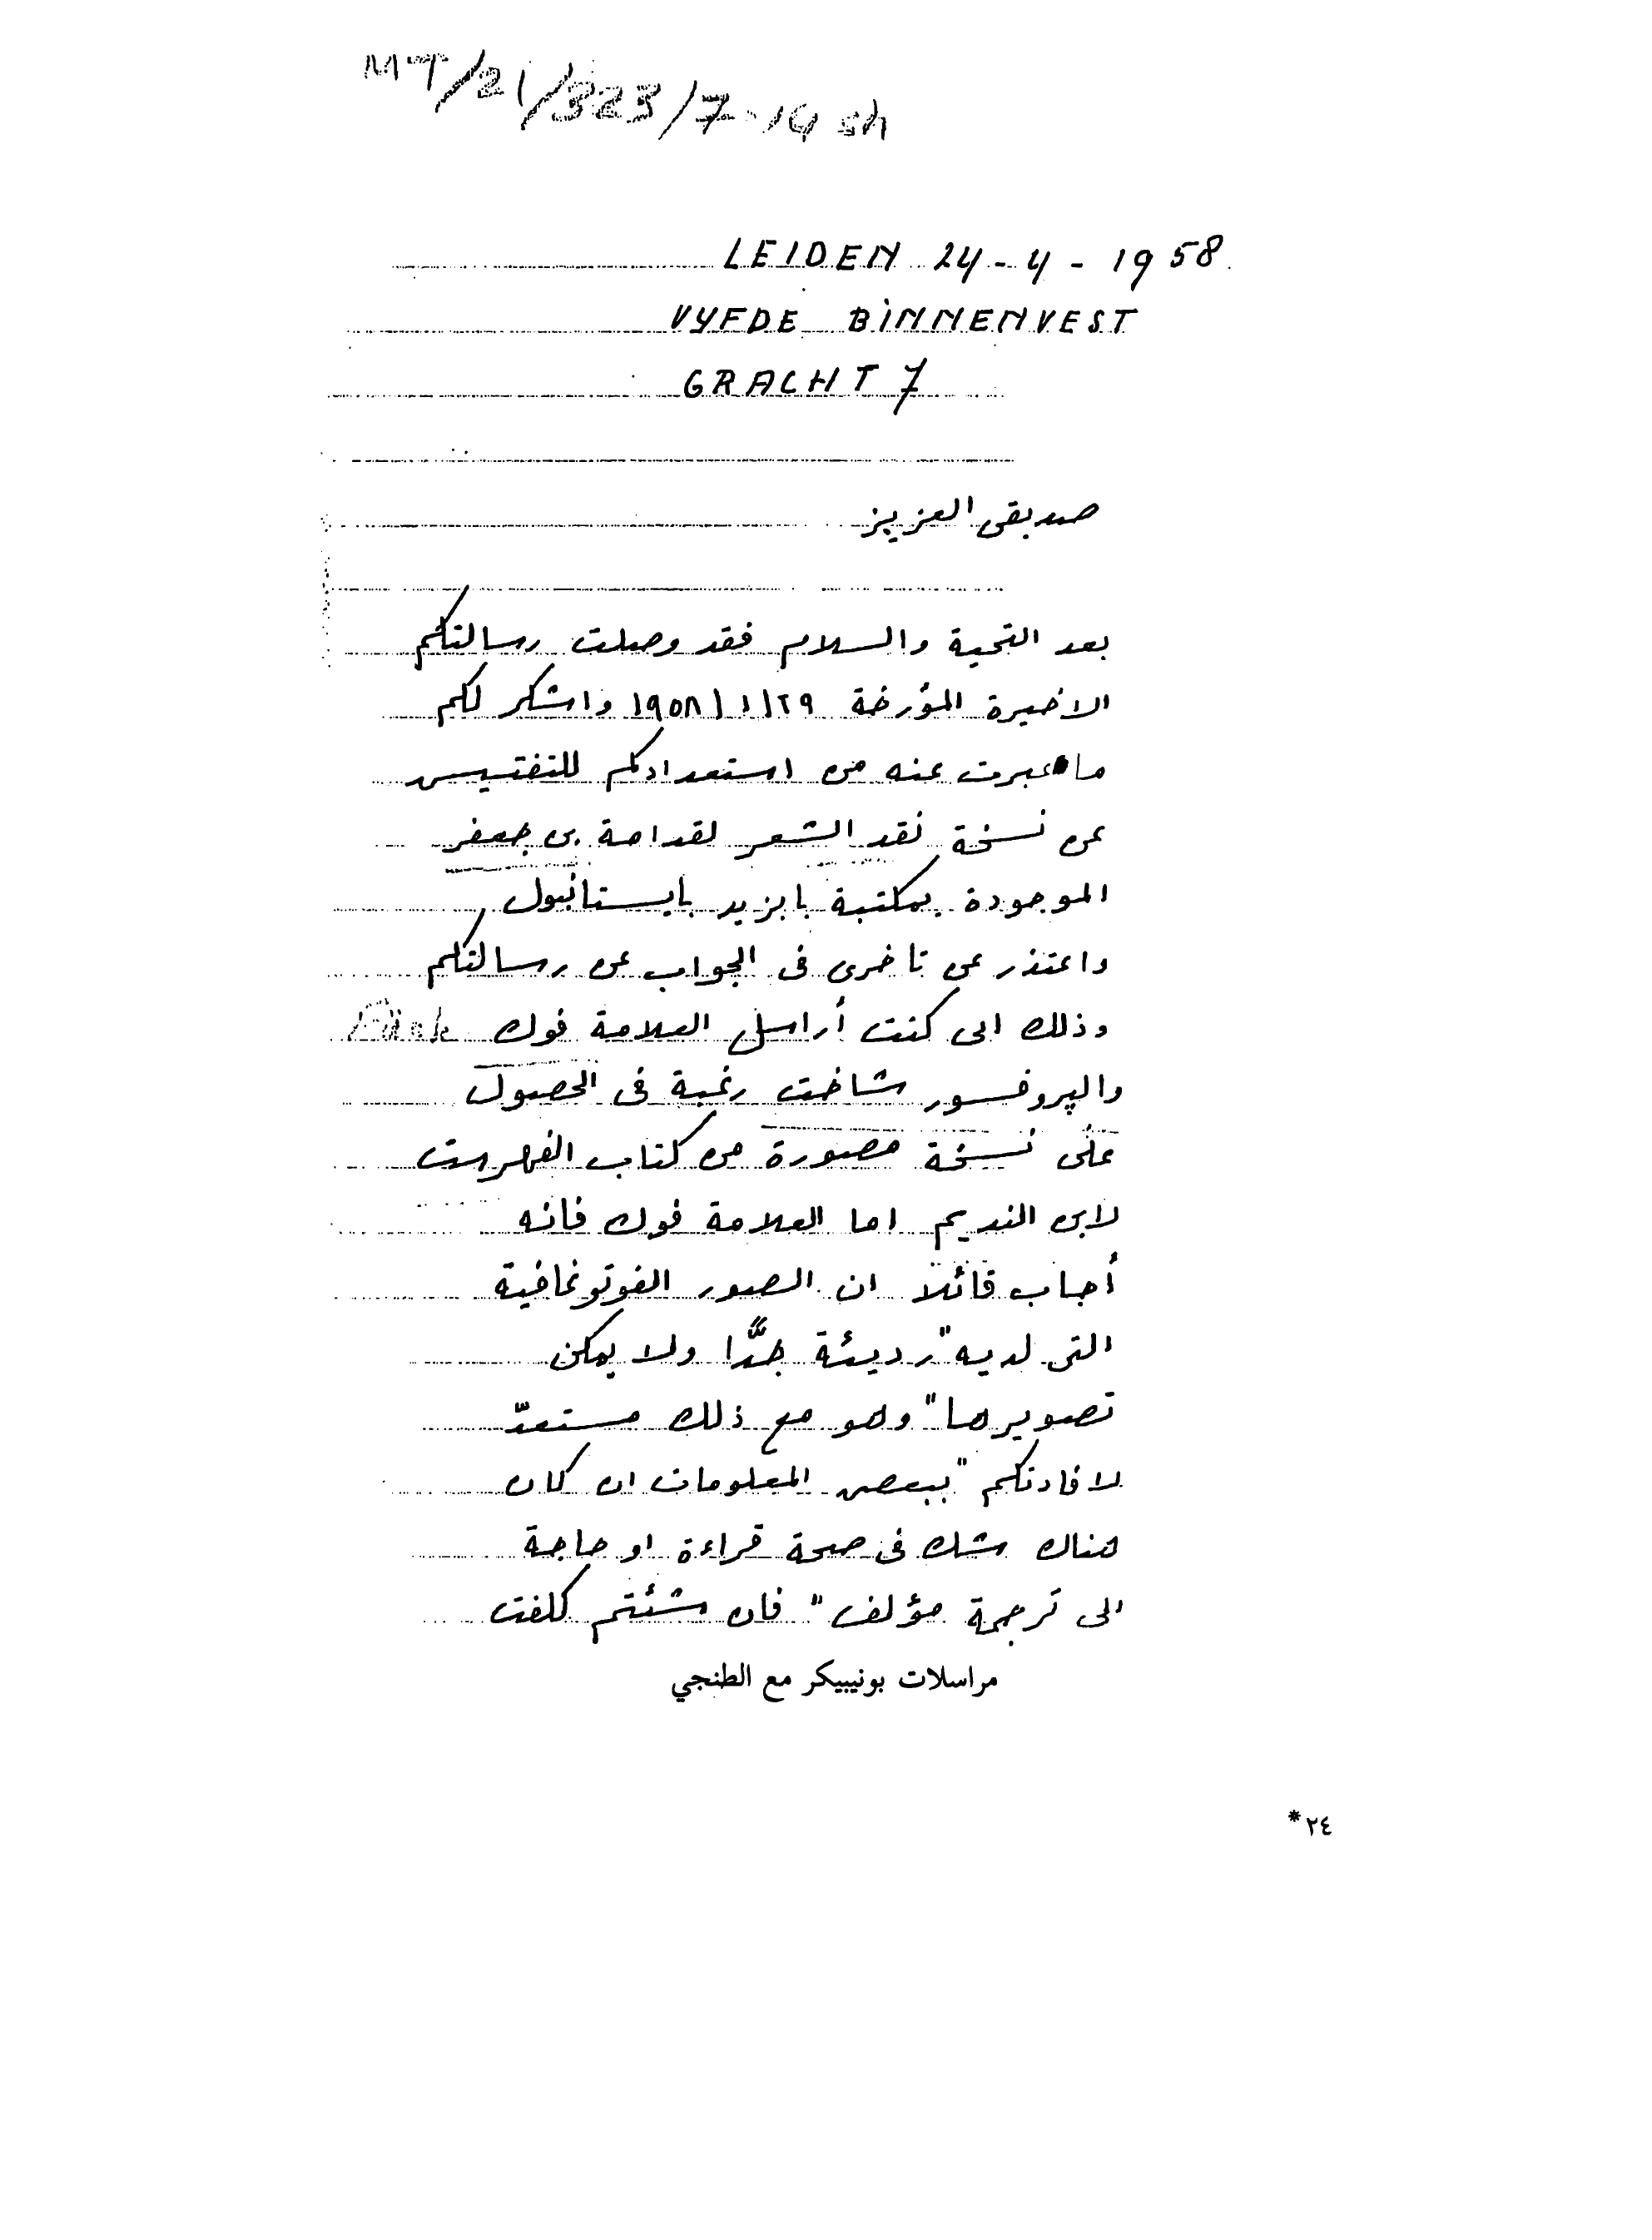 MT/21/323/7-14 sh
LEIDEN 24-4-1958
VYFDE BINNENVEST
GRACHT 7
صديقى العزيز
بعد التحية والسلام فقد وصلت رسالتكم
الاخيرة المؤرخة ٢٩/١/١٩٥٨ واشكر لكم
ما عبرت عنه من استعدادكم للتفتيس
عن نسخة نقد الشعر لقدامة بن جعفر
الموجودة بمكتبة بايزيد بايستانبول
واعتذر عن تاخرى فى الجواب عن رسالتكم
وذلك انى كنت أراسل العلامة فوك Fück
والپروفسور شاخت رغبة فى الحصول
على نسخة مصورة من كتاب الفهرست
لابن النديم اما العلامة فوك فانه
أجاب قائلا ان الصور الفوتوغافية
التى لديه "رديئة جدًّا ولا يمكن
تصويرها" وهو مع ذلك مستعدّ
لافادتكم "ببعض المعلومات ان كان
هناك شك فى صحة قراءة او حاجة
الى ترجمة مؤلف" فان شئتم كلفت
مراسلات بونيبيكر مع الطنجي
٢٤*